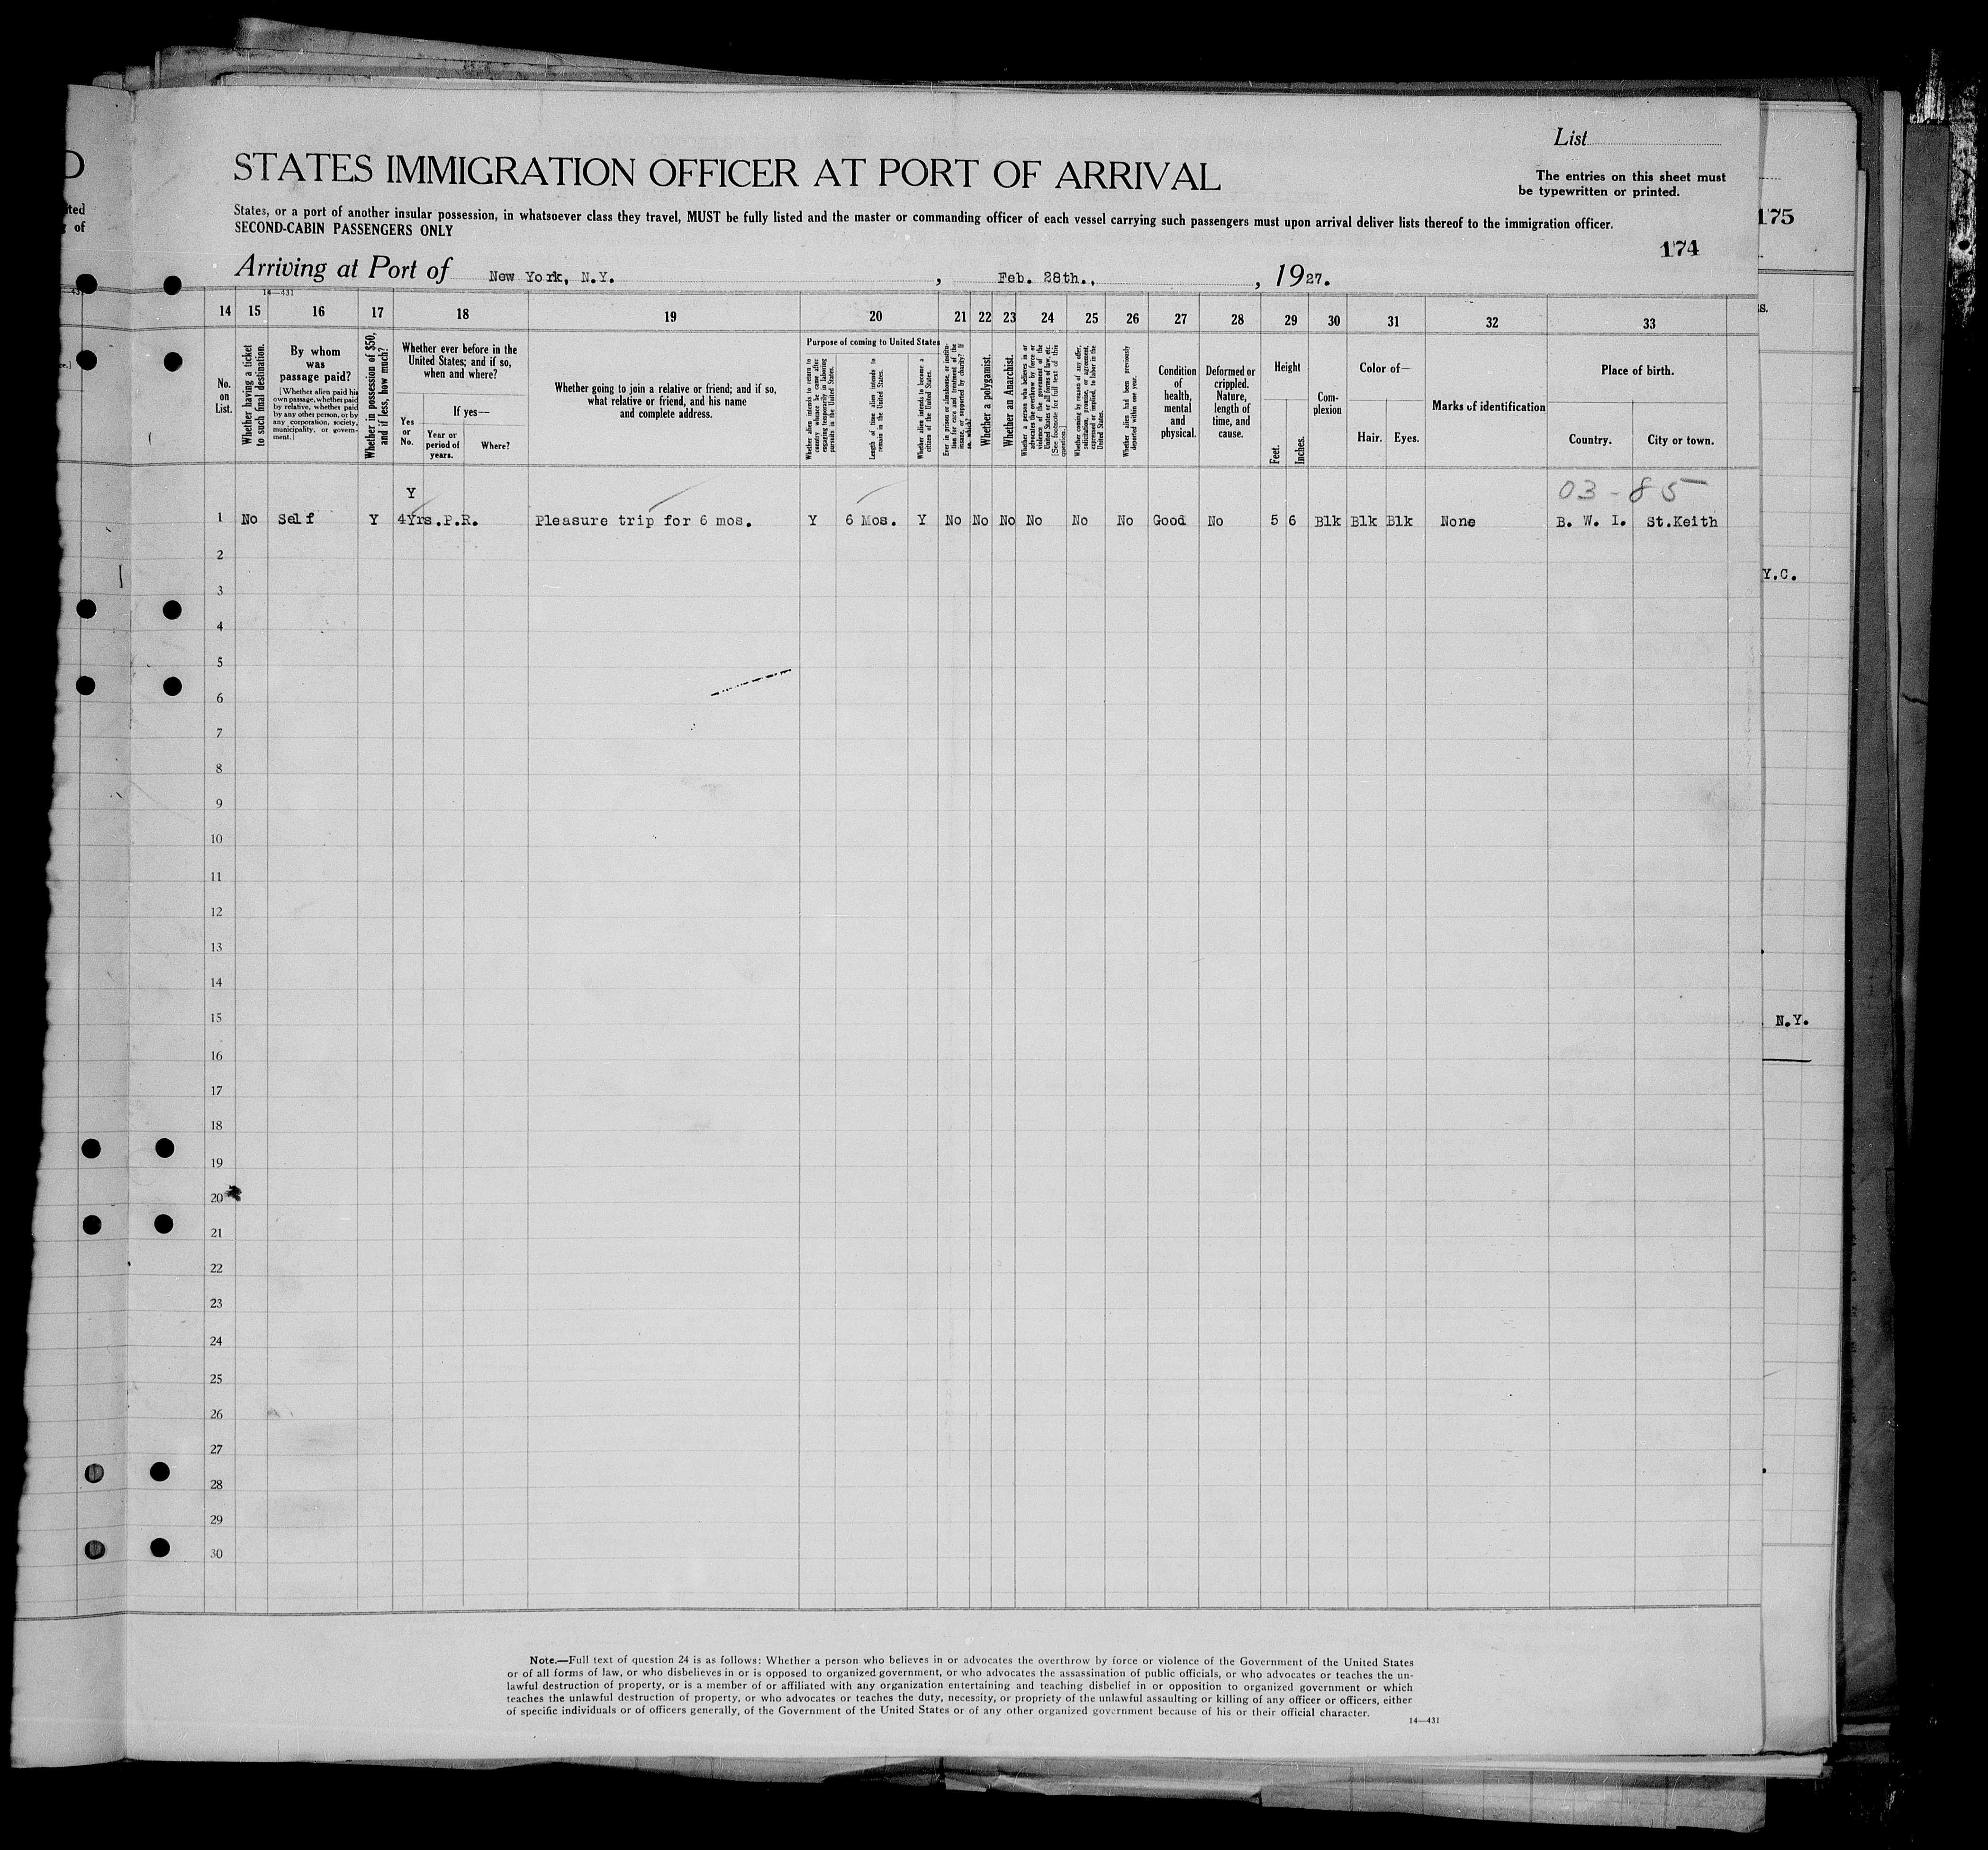 List
STATES IMMIGRATION OFFICER AT PORT OF ARRIVAL
The entries on this sheet must
be typewritten or printed.
States, or a port of another insular possession, in whatsoever class they travel, MUST be fully listed and the master or commanding officer of each vessel carrying such passengers must upon arrival deliver lists thereof to the immigration officer.
SECOND-CABIN PASSENGERS ONLY
174
175
Arriving at Port of New York, N.Y. , Feb. 28th., , 1927.
14—431
14 15 16 17 18 19 20 21 22 23 24 25 26 27 28 29 30 31 32 33
No. on List.
Whether having a ticket to such final destination.
By whom was passage paid?
[Whether alien paid his own passage, whether paid by relative, whether paid by any other person, or by any corporation, society, municipality, or government.]
Whether in possession of $50, and if less, how much?
Whether ever before in the United States; and if so, when and where?
Yes or No.
If yes—
Year or period of years.
Where?
Whether going to join a relative or friend; and if so, what relative or friend, and his name and complete address.
Purpose of coming to United States
Whether alien intends to return to country whence he came after engaging temporarily in laboring pursuits in the United States.
Length of time alien intends to remain in the United States.
Whether alien intends to become a citizen of the United States.
Ever in prison or almshouse, or institution for care and treatment of the insane, or supported by charity? If so, which?
Whether a polygamist.
Whether an Anarchist.
Whether a person who believes in or advocates the overthrow by force or violence of the government of the United States or all forms of law, etc. [See footnote for full text of this question.]
Whether coming by reason of any offer, solicitation, promise, or agreement, expressed or implied, to labor in the United States.
Whether alien had been previously deported within one year.
Condition of health, mental and physical.
Deformed or crippled. Nature, length of time, and cause.
Height
Feet. Inches.
Complexion
Color of—
Hair. Eyes.
Marks of identification
Place of birth.
Country. City or town.
Y
03-85
1 No Self Y 4Yrs.P.R. Pleasure trip for 6 mos. Y 6 Mos. Y No No No No No No Good No 5 6 Blk Blk Blk None B. W. I. St.Keith
2
Y.C.
3
4
5
6
7
8
9
10
11
12
13
14
15
N.Y.
16
17
18
19
20
21
22
23
24
25
26
27
28
29
30
Note.—Full text of question 24 is as follows: Whether a person who believes in or advocates the overthrow by force or violence of the Government of the United States
or of all forms of law, or who disbelieves in or is opposed to organized government, or who advocates the assassination of public officials, or who advocates or teaches the un-
lawful destruction of property, or is a member of or affiliated with any organization entertaining and teaching disbelief in or opposition to organized government or which
teaches the unlawful destruction of property, or who advocates or teaches the duty, necessity, or propriety of the unlawful assaulting or killing of any officer or officers, either
of specific individuals or of officers generally, of the Government of the United States or of any other organized government because of his or their official character.
14—431